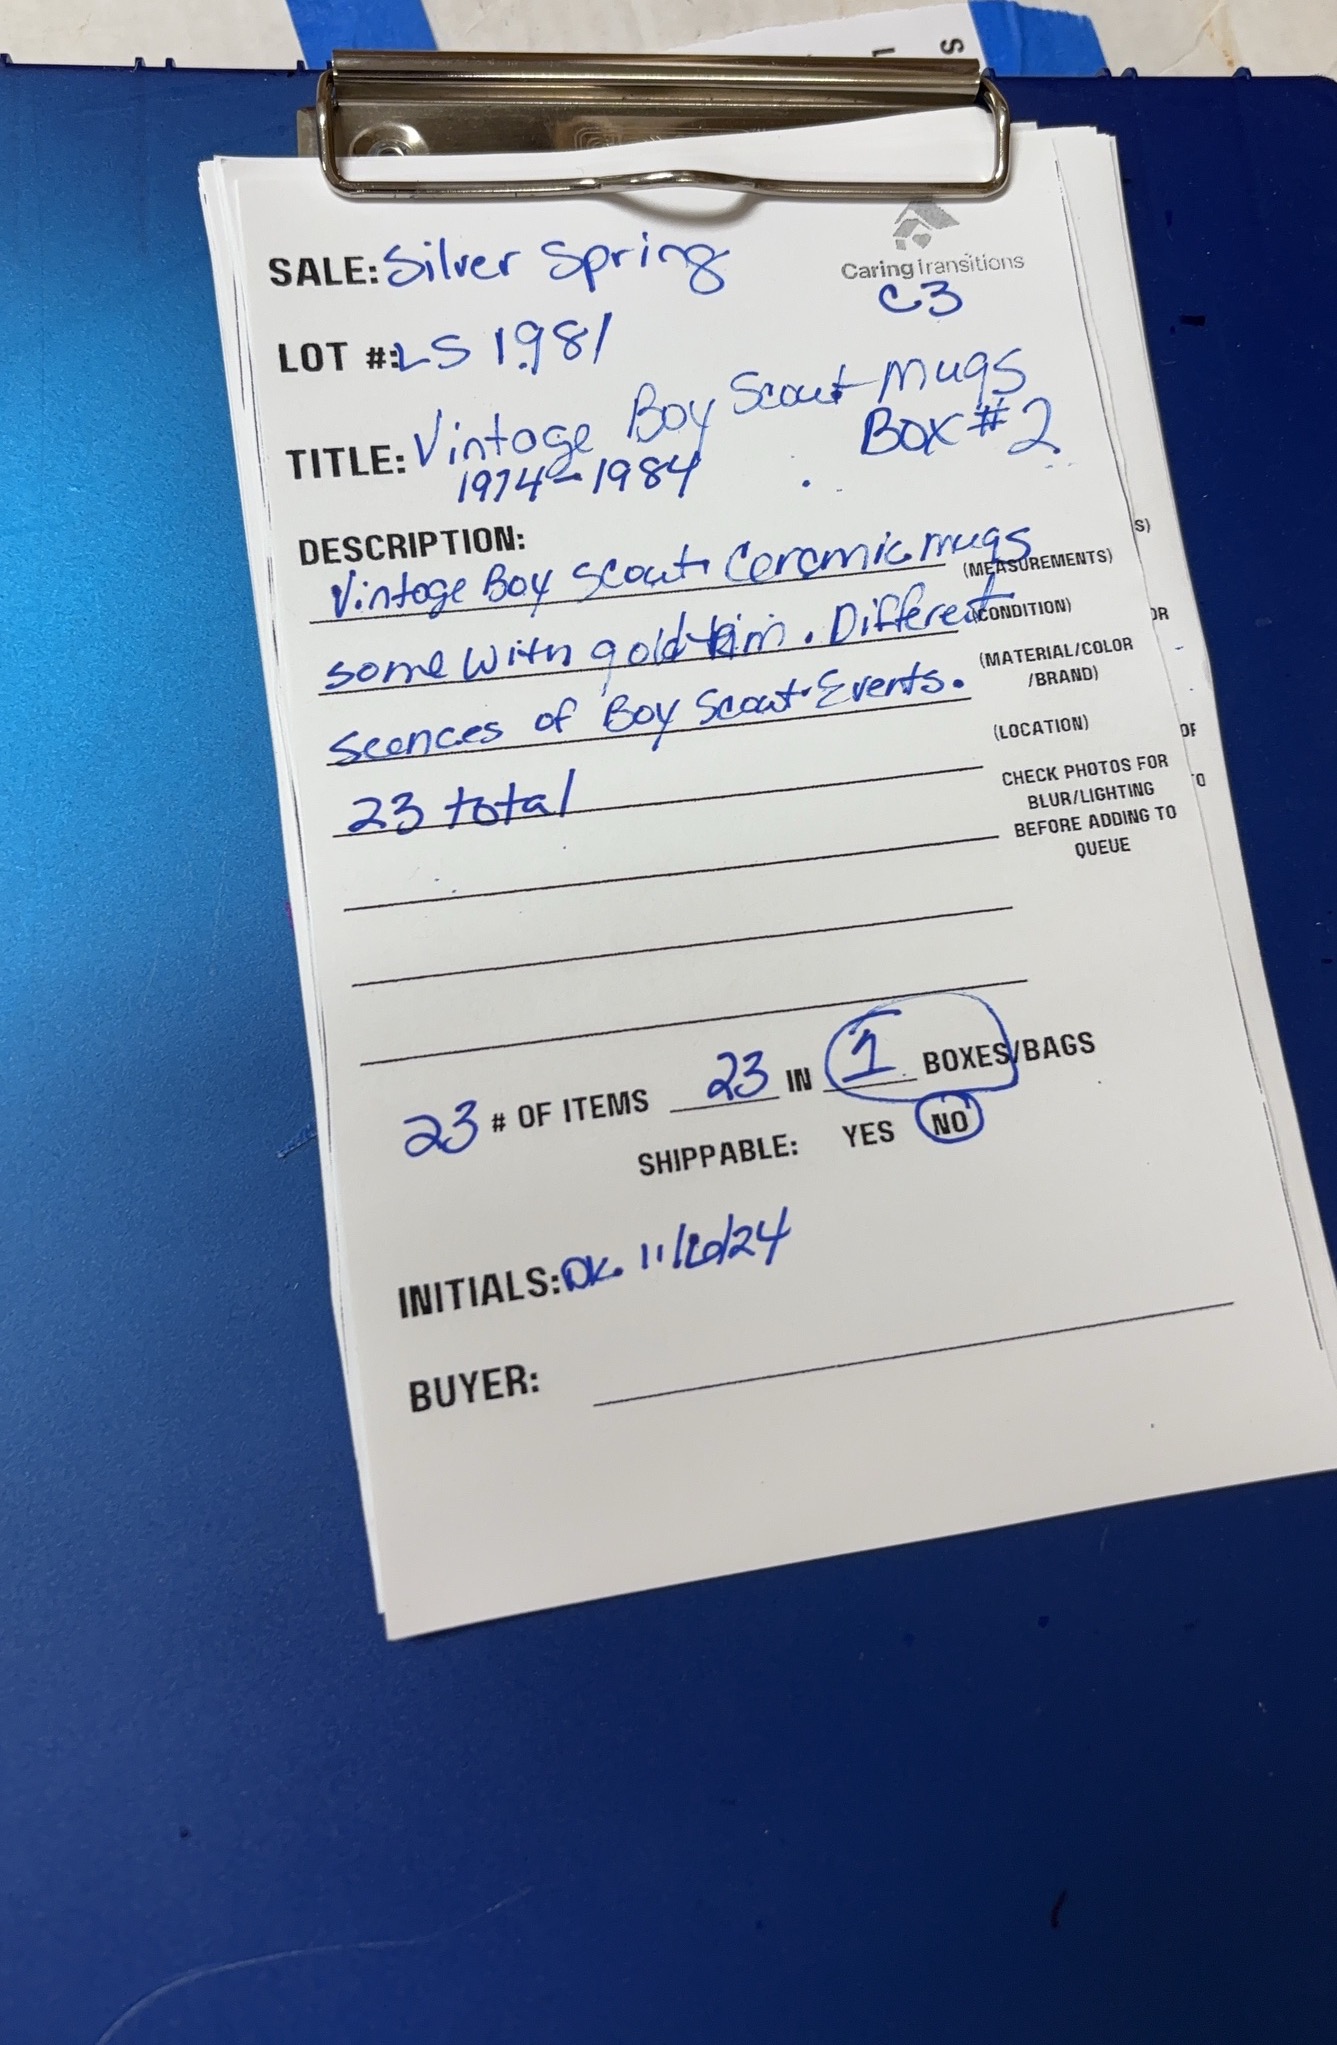 SALE: Silver Spring
CaringTransitions
C3
LOT #: LS 1981
TITLE: Vintage Boy Scout Mugs
1974-1984
Box #2
DESCRIPTION:
Vintage Boy Scout Ceramic mugs
(MEASUREMENTS)
some with gold trim. Different
(CONDITION)
scences of Boy Scout Events.
(MATERIAL/COLOR
/BRAND)
23 total
(LOCATION)
CHECK PHOTOS FOR
BLUR/LIGHTING
BEFORE ADDING TO
QUEUE
23 # OF ITEMS 23 IN 1 BOXES/BAGS
SHIPPABLE: YES NO
INITIALS: DK.
BUYER: